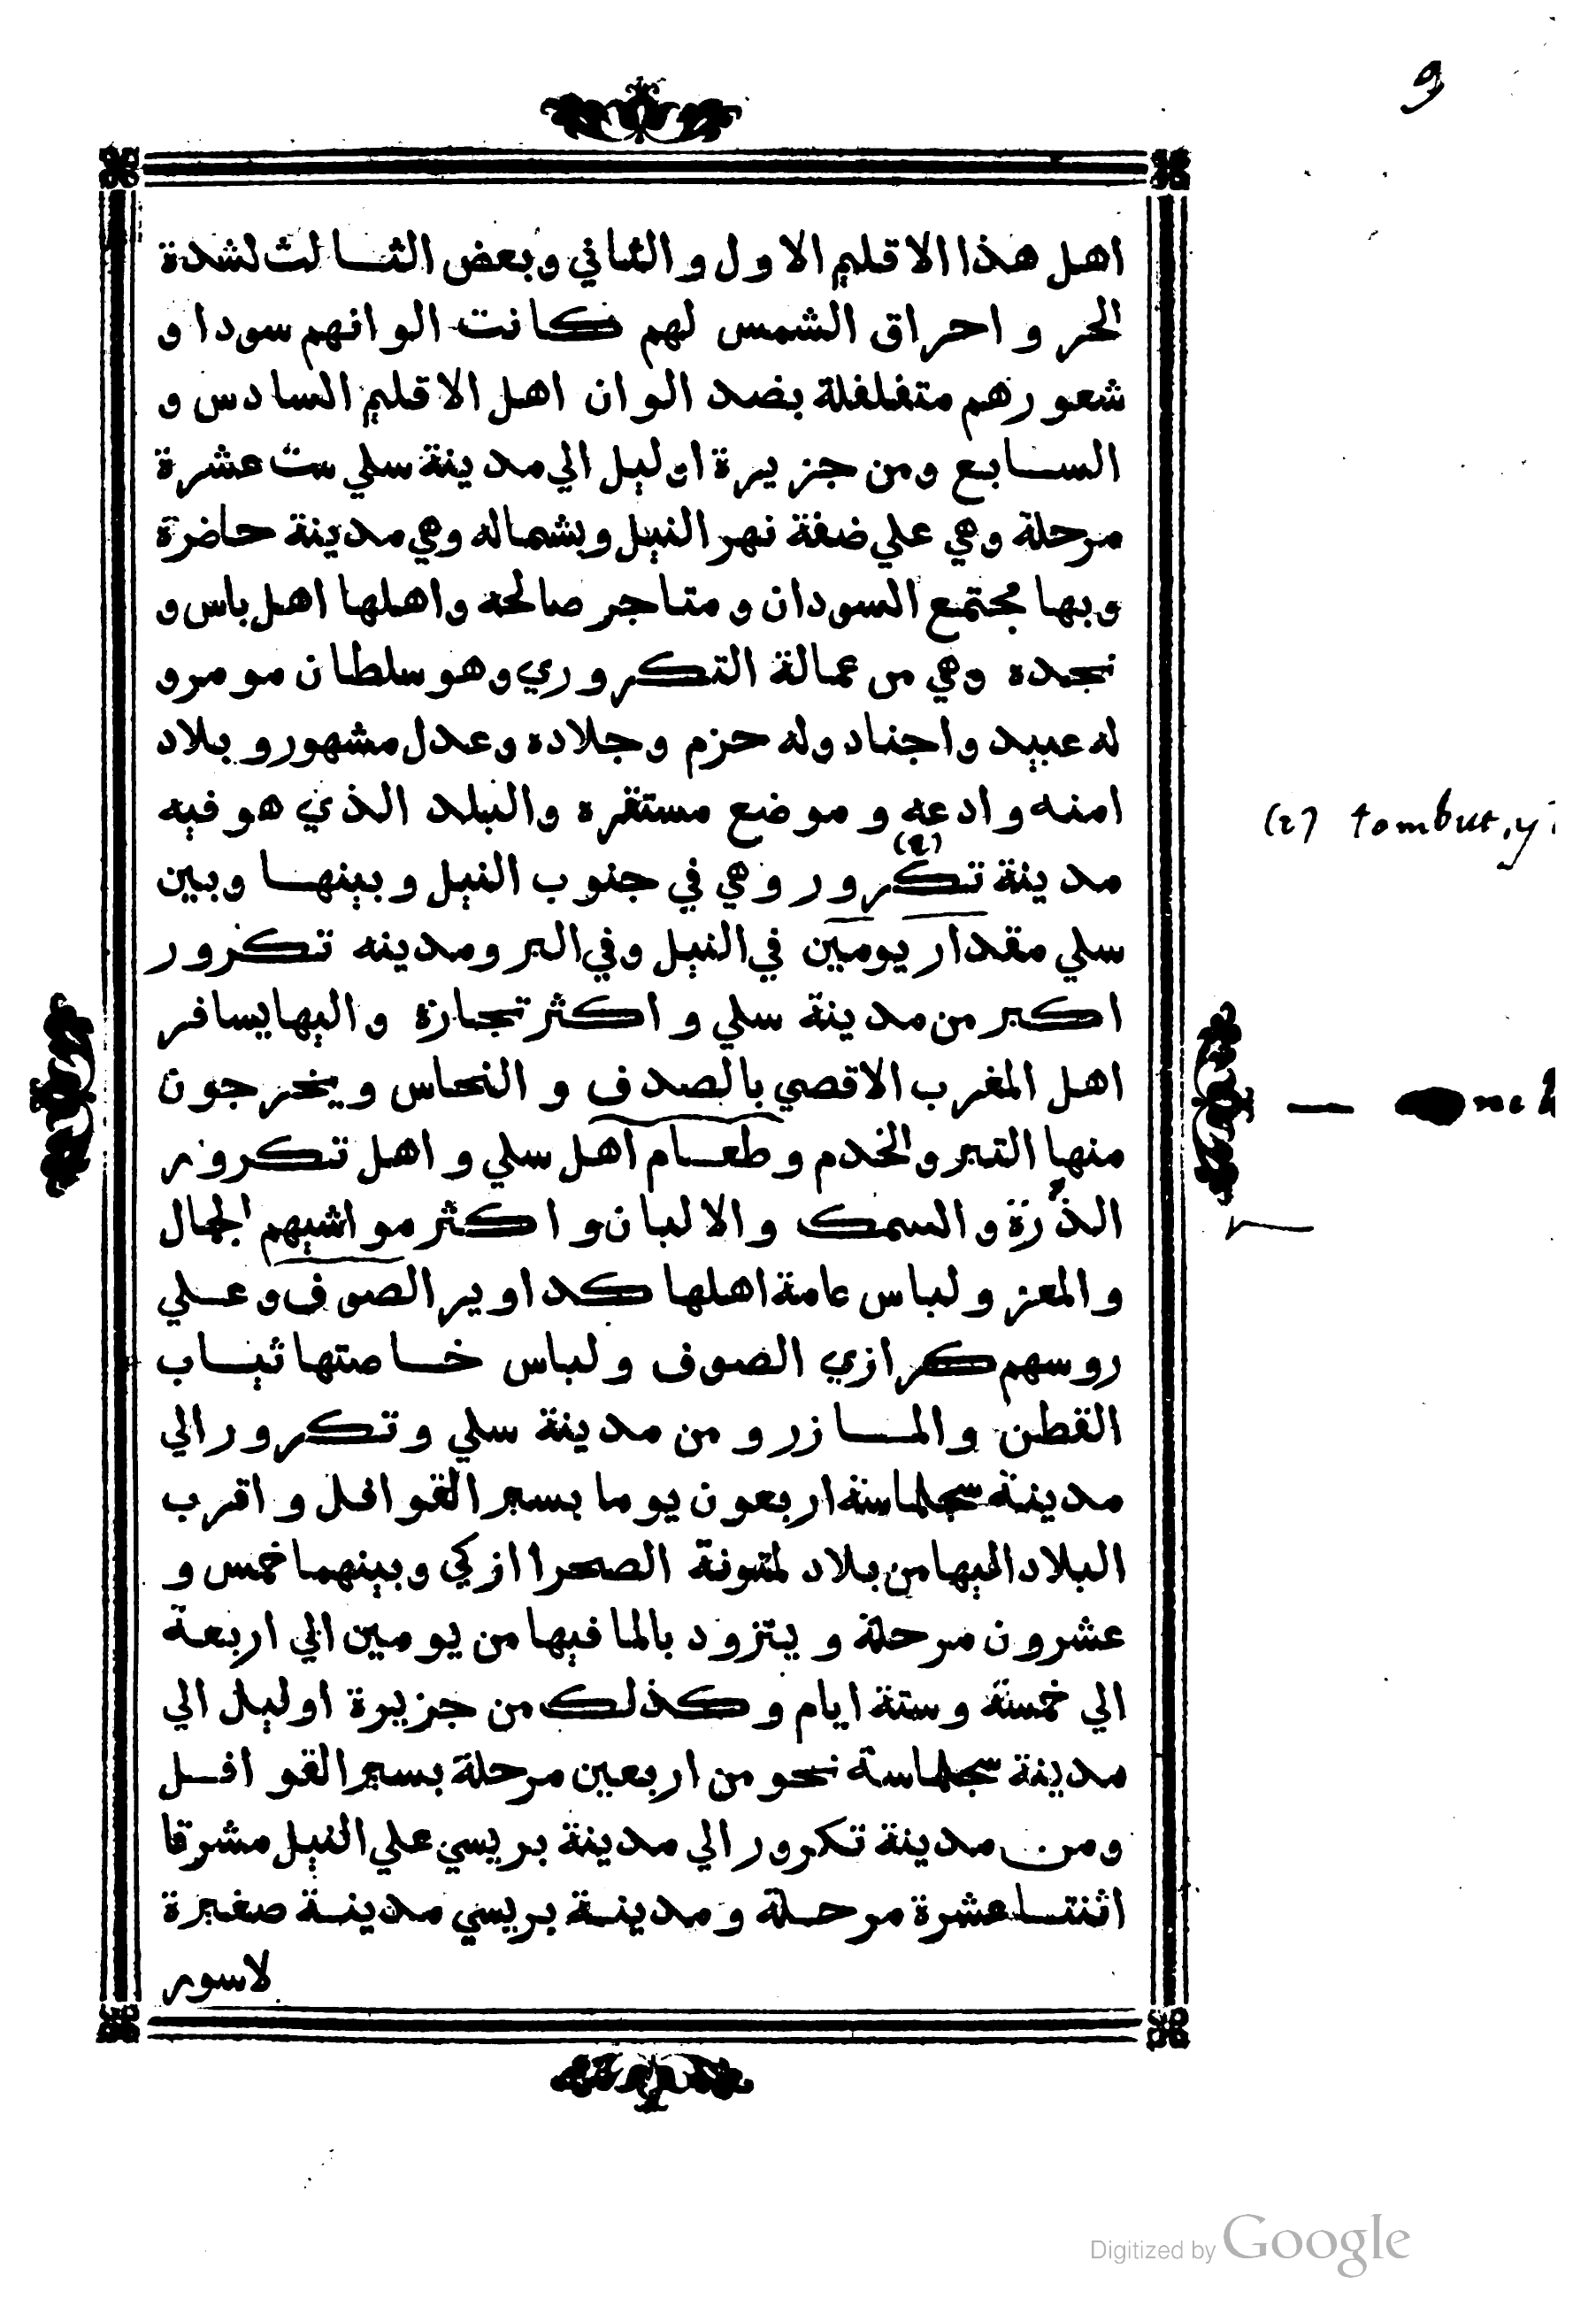 9
اهل هذا الاقليم الاول والثاني وبعض الثالث لشدة
الحر واحراق الشمس لهم كانت الوانهم سودا و
شعورهم متفلفلة بضد الوان اهل الاقليم السادس و
السابع ومن جزيرة اوليل الي مدينة سلي ست عشرة
مرحلة وهي علي ضفة نهر النيل وبشماله وهي مدينة حاضرة
وبها مجتمع السودان ومتاجر صالحه واهلها اهل باس و
نجده وهي من عمالة التكروري وهو سلطان مومر و
له عبيد واجناد وله حزم وجلاده وعدل مشهور وبلاد
امنه وادعه وموضع مستقره والبلد الذي هو فيه
(2) tombut,y
مدينة تكرور (2) وهي في جنوب النيل وبينها وبين
سلي مقدار يومين في النيل وفي البر ومدينه تكرور
اكبر من مدينة سلي واكثر تجارة واليها يسافر
اهل المغرب الاقصي بالصدف والنحاس ويخرجون
منها التبر والخدم وطعام اهل سلي واهل تكرور
الذرة والسمك والالبان واكثر مواشيهم الجمال
والمعز ولباس عامة اهلها كداوير الصوف وعلي
روسهم كرازي الصوف ولباس خاصتها ثياب
القطن والمازر ومن مدينة سلي وتكرور الي
مدينة سجلماسة اربعون يوما بسير القوافل واقرب
البلاد اليها من بلاد لمتونة الصحرا ازكي وبينهما خمس و
عشرون مرحلة ويتزود بالما فيها من يومين الي اربعة
الي خمسة وستة ايام وكذلك من جزيرة اوليل الي
مدينة سجلماسة نحو من اربعين مرحلة بسير القوافل
ومن مدينة تكرور الي مدينة بريسي علي النيل مشرقا
اثنتا عشرة مرحلة ومدينة بريسي مدينة صغيرة
لاسور
Digitized by Google